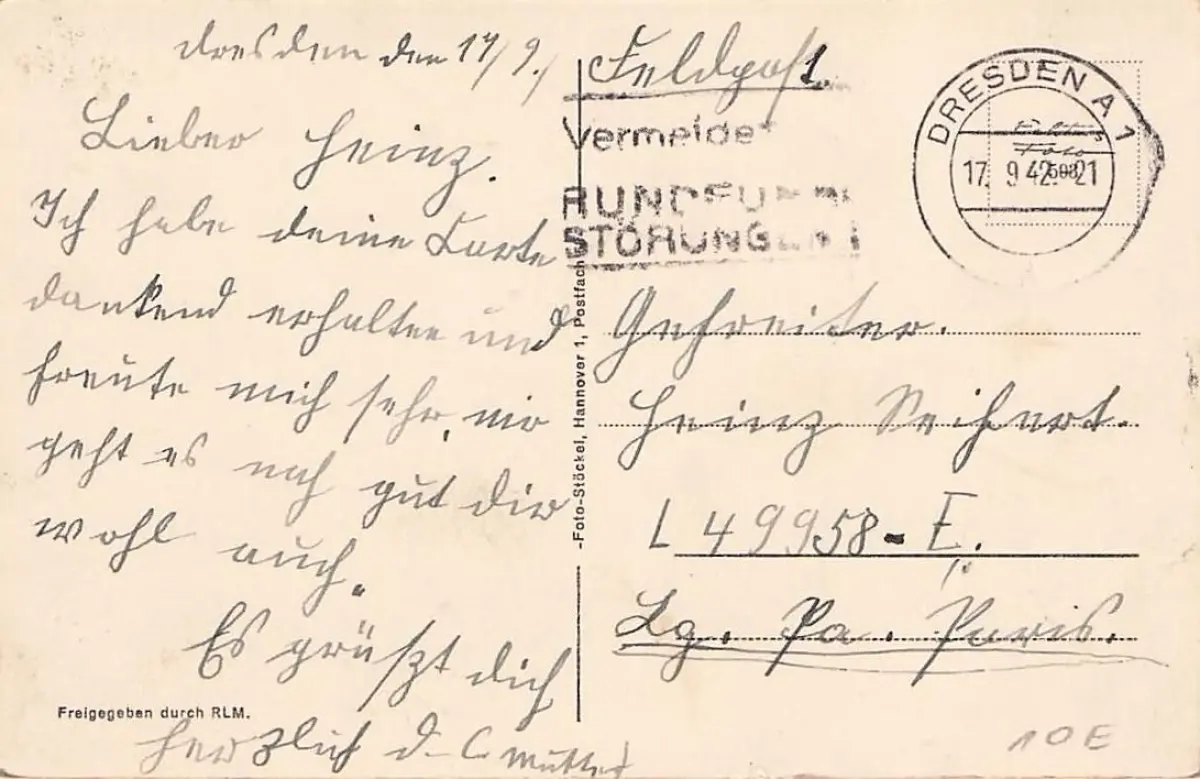 Dresden den 17/9.
Lieber Heinz.
Ich habe deine Karte
dankend erhalten und
freute mich sehr, mir
geht es noch gut dir
wohl auch.
Es grüßt dich
herzlich d. Mutter
Freigegeben durch RLM.
-Foto-Stöckel, Hannover 1, Postfach
Feldpost.
Vermeidet
RUNDFUNK
STÖRUNGEN!
DRESDEN A 1
17. 9 42 21
Gefreiter.
Heinz Seifert.
L 49958 - E.
Lg. Pa. Paris.
10E